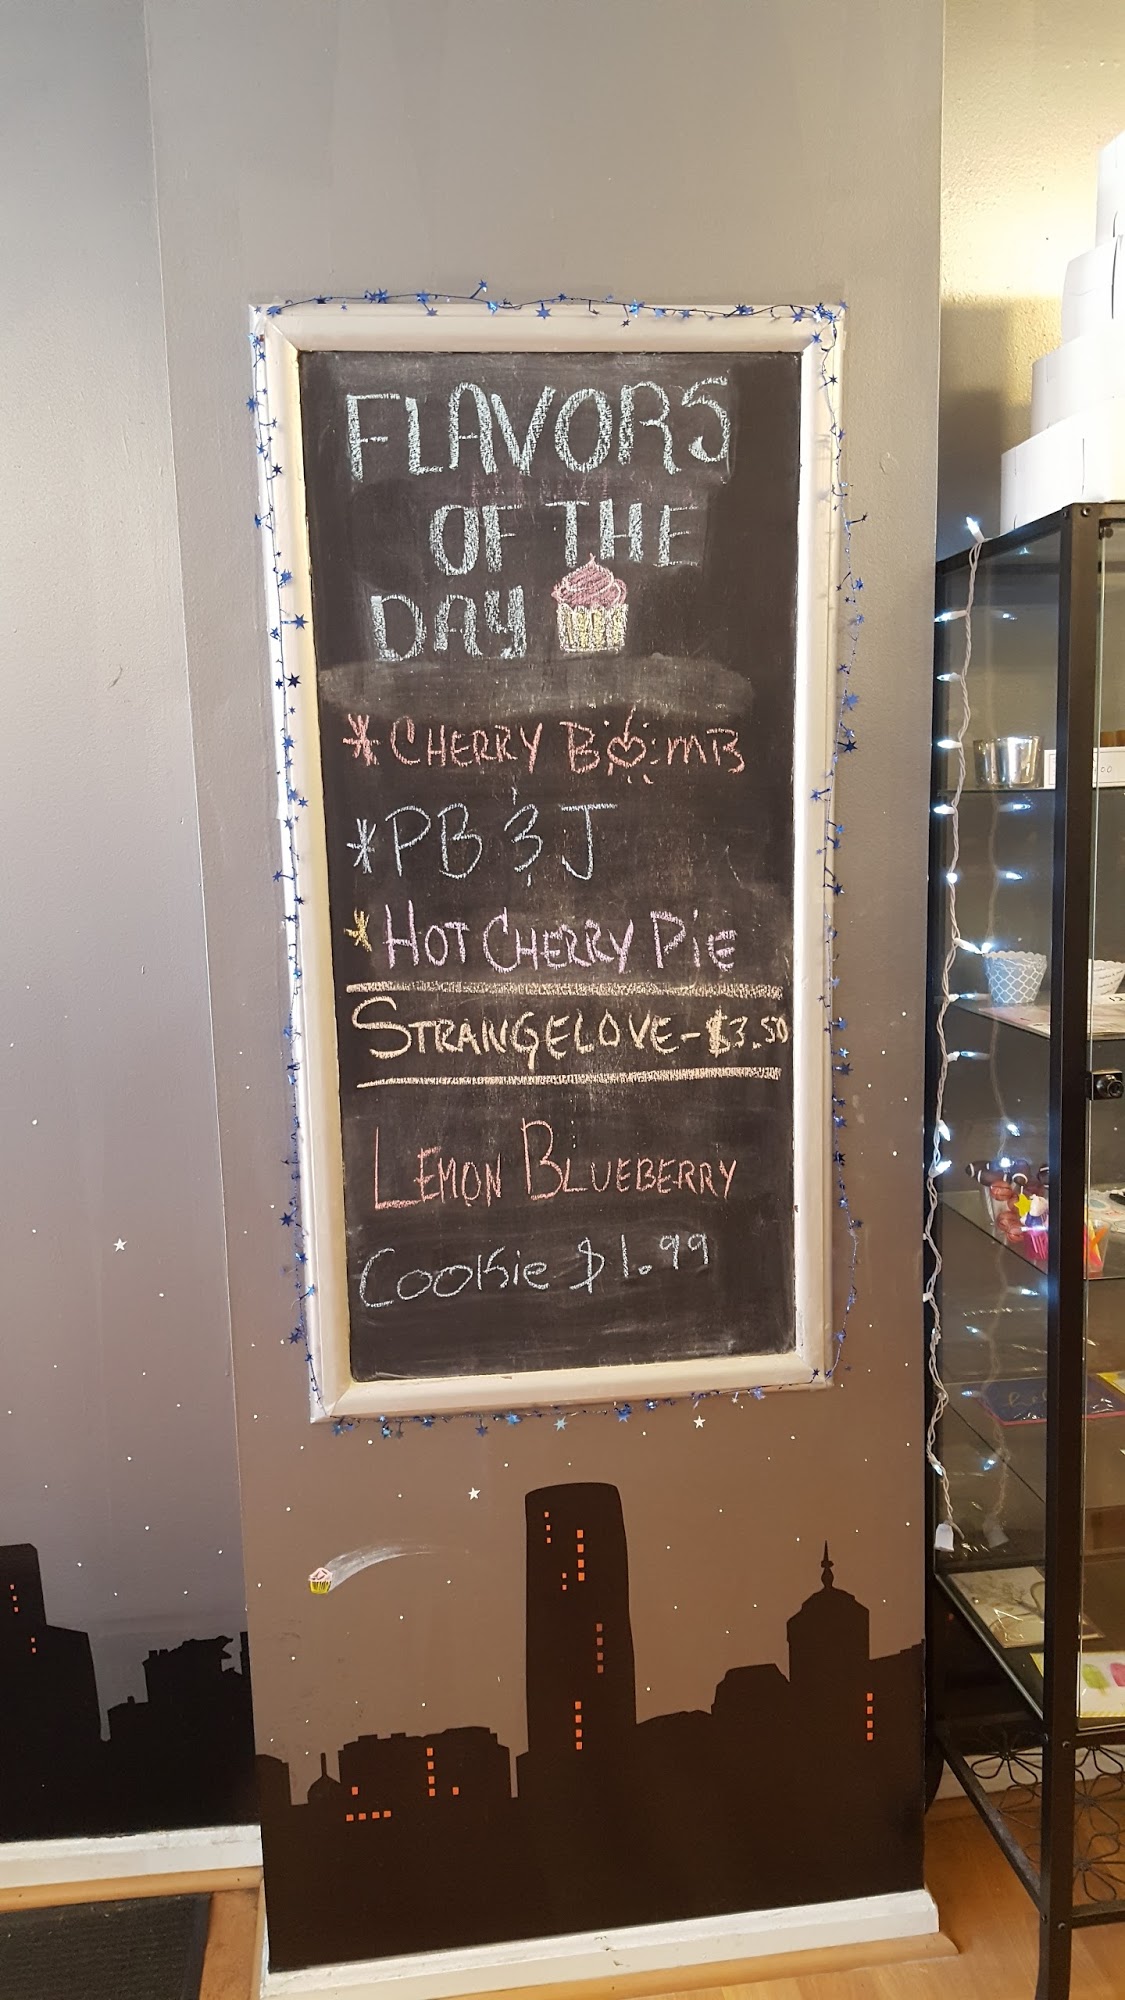 FLAVORS
OF THE
DAY
* CHERRY BOMB
* PB & J
* HOT CHERRY PiE
STRANGELOVE - $3.50
LEMON BLUEBERRY
Cookie $1.99